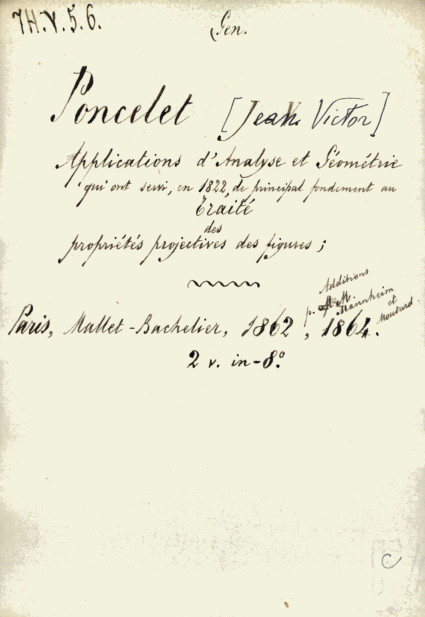 7H.V.5.6.
Gen.
Poncelet [Jean Victor]
Applications d'Analyse et Géométrie
qui ont servi, en 1822, de principal fondement au
Traité
des
propriétés projectives des figures ;
Additions
p. MM.
Mannheim
et
Moutard.
Paris, Mallet-Bachelier, 1862, 1864.
2 v. in-8°
C